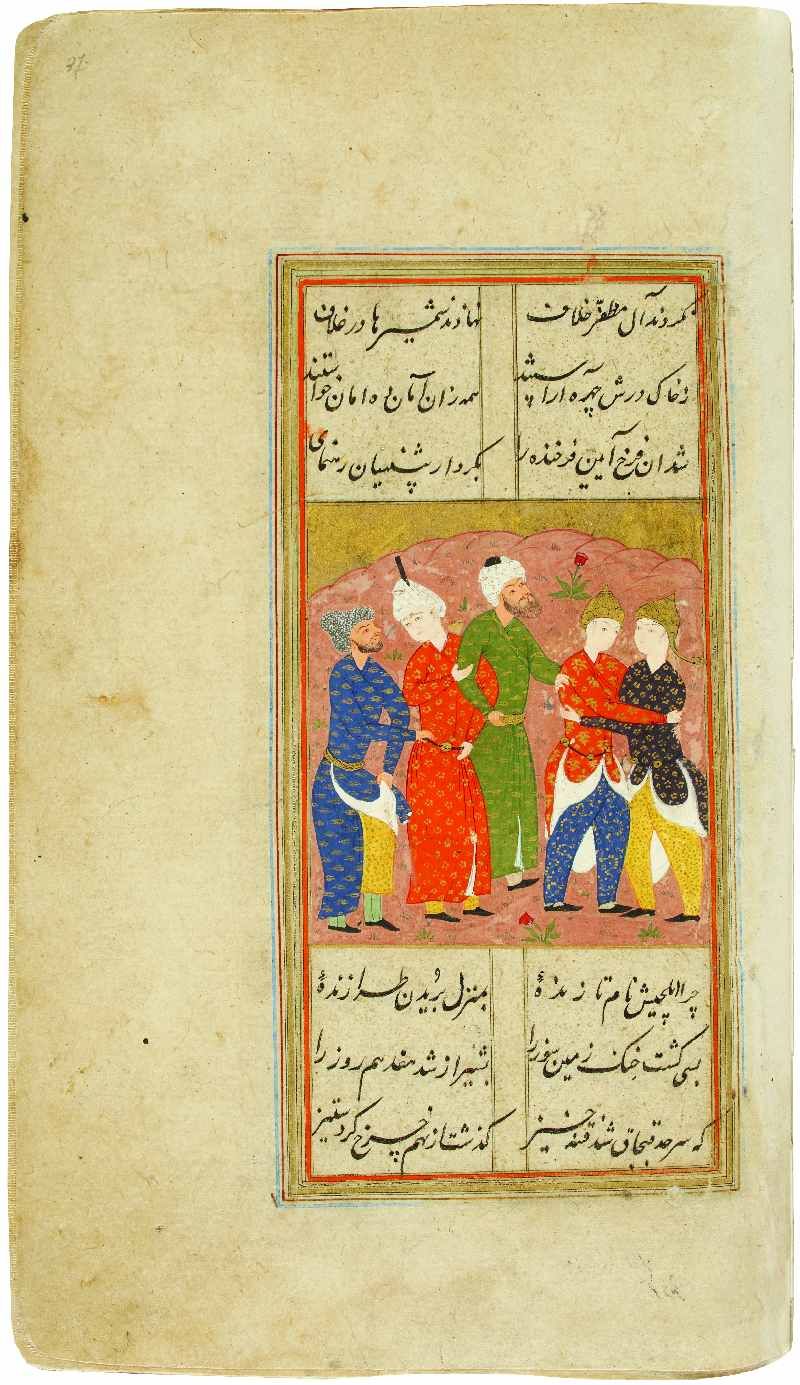 نکردند آل مظفر خلاف نهادند شمشیرها در غلاف
ز خاک درش چهره آراستند همه زان امان ده امان خواستند
شد آن فرخ آیین فرخنده را بکردار پیشینیان رهنمای
نام تا زنده بمنزل بریدن طرازنده
بسی کشت خنک زمین سوز را بشیراز شد هفدهم روز را
که سرحد قبچاق شد فتنه خیز گذشت از نهم چرخ گرد ستیز